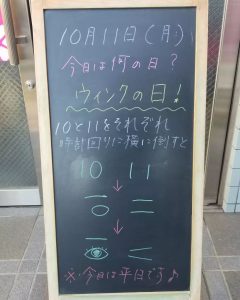 10月11日(月)
今日は何の日?
ウィンクの日!
10と11をそれぞれ
時計回りに横に倒すと
10 11
↓ ↓
※今日は平日です♪